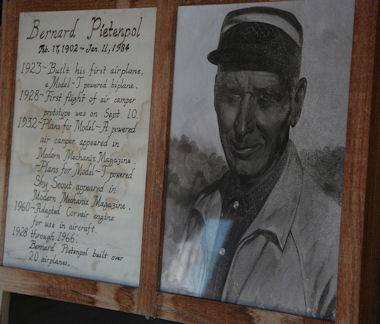 Bernard Pietenpol
Feb. 17, 1902 ~ Jan. 11, 1984
1923~Built his first airplane,
a Model-T powered biplane.
1928~First flight of air camper
prototype was on Sept. 10.
1932~Plans for Model-A powered
air camper appeared in
Modern Mechanix Magazine.
~Plans for Model-T powered
Sky Scout appeared in
Modern Mechanix Magazine.
1960~Adapted Corvair engine
for use in aircraft.
1928 through 1966~
Bernard Pietenpol built over
20 airplanes.